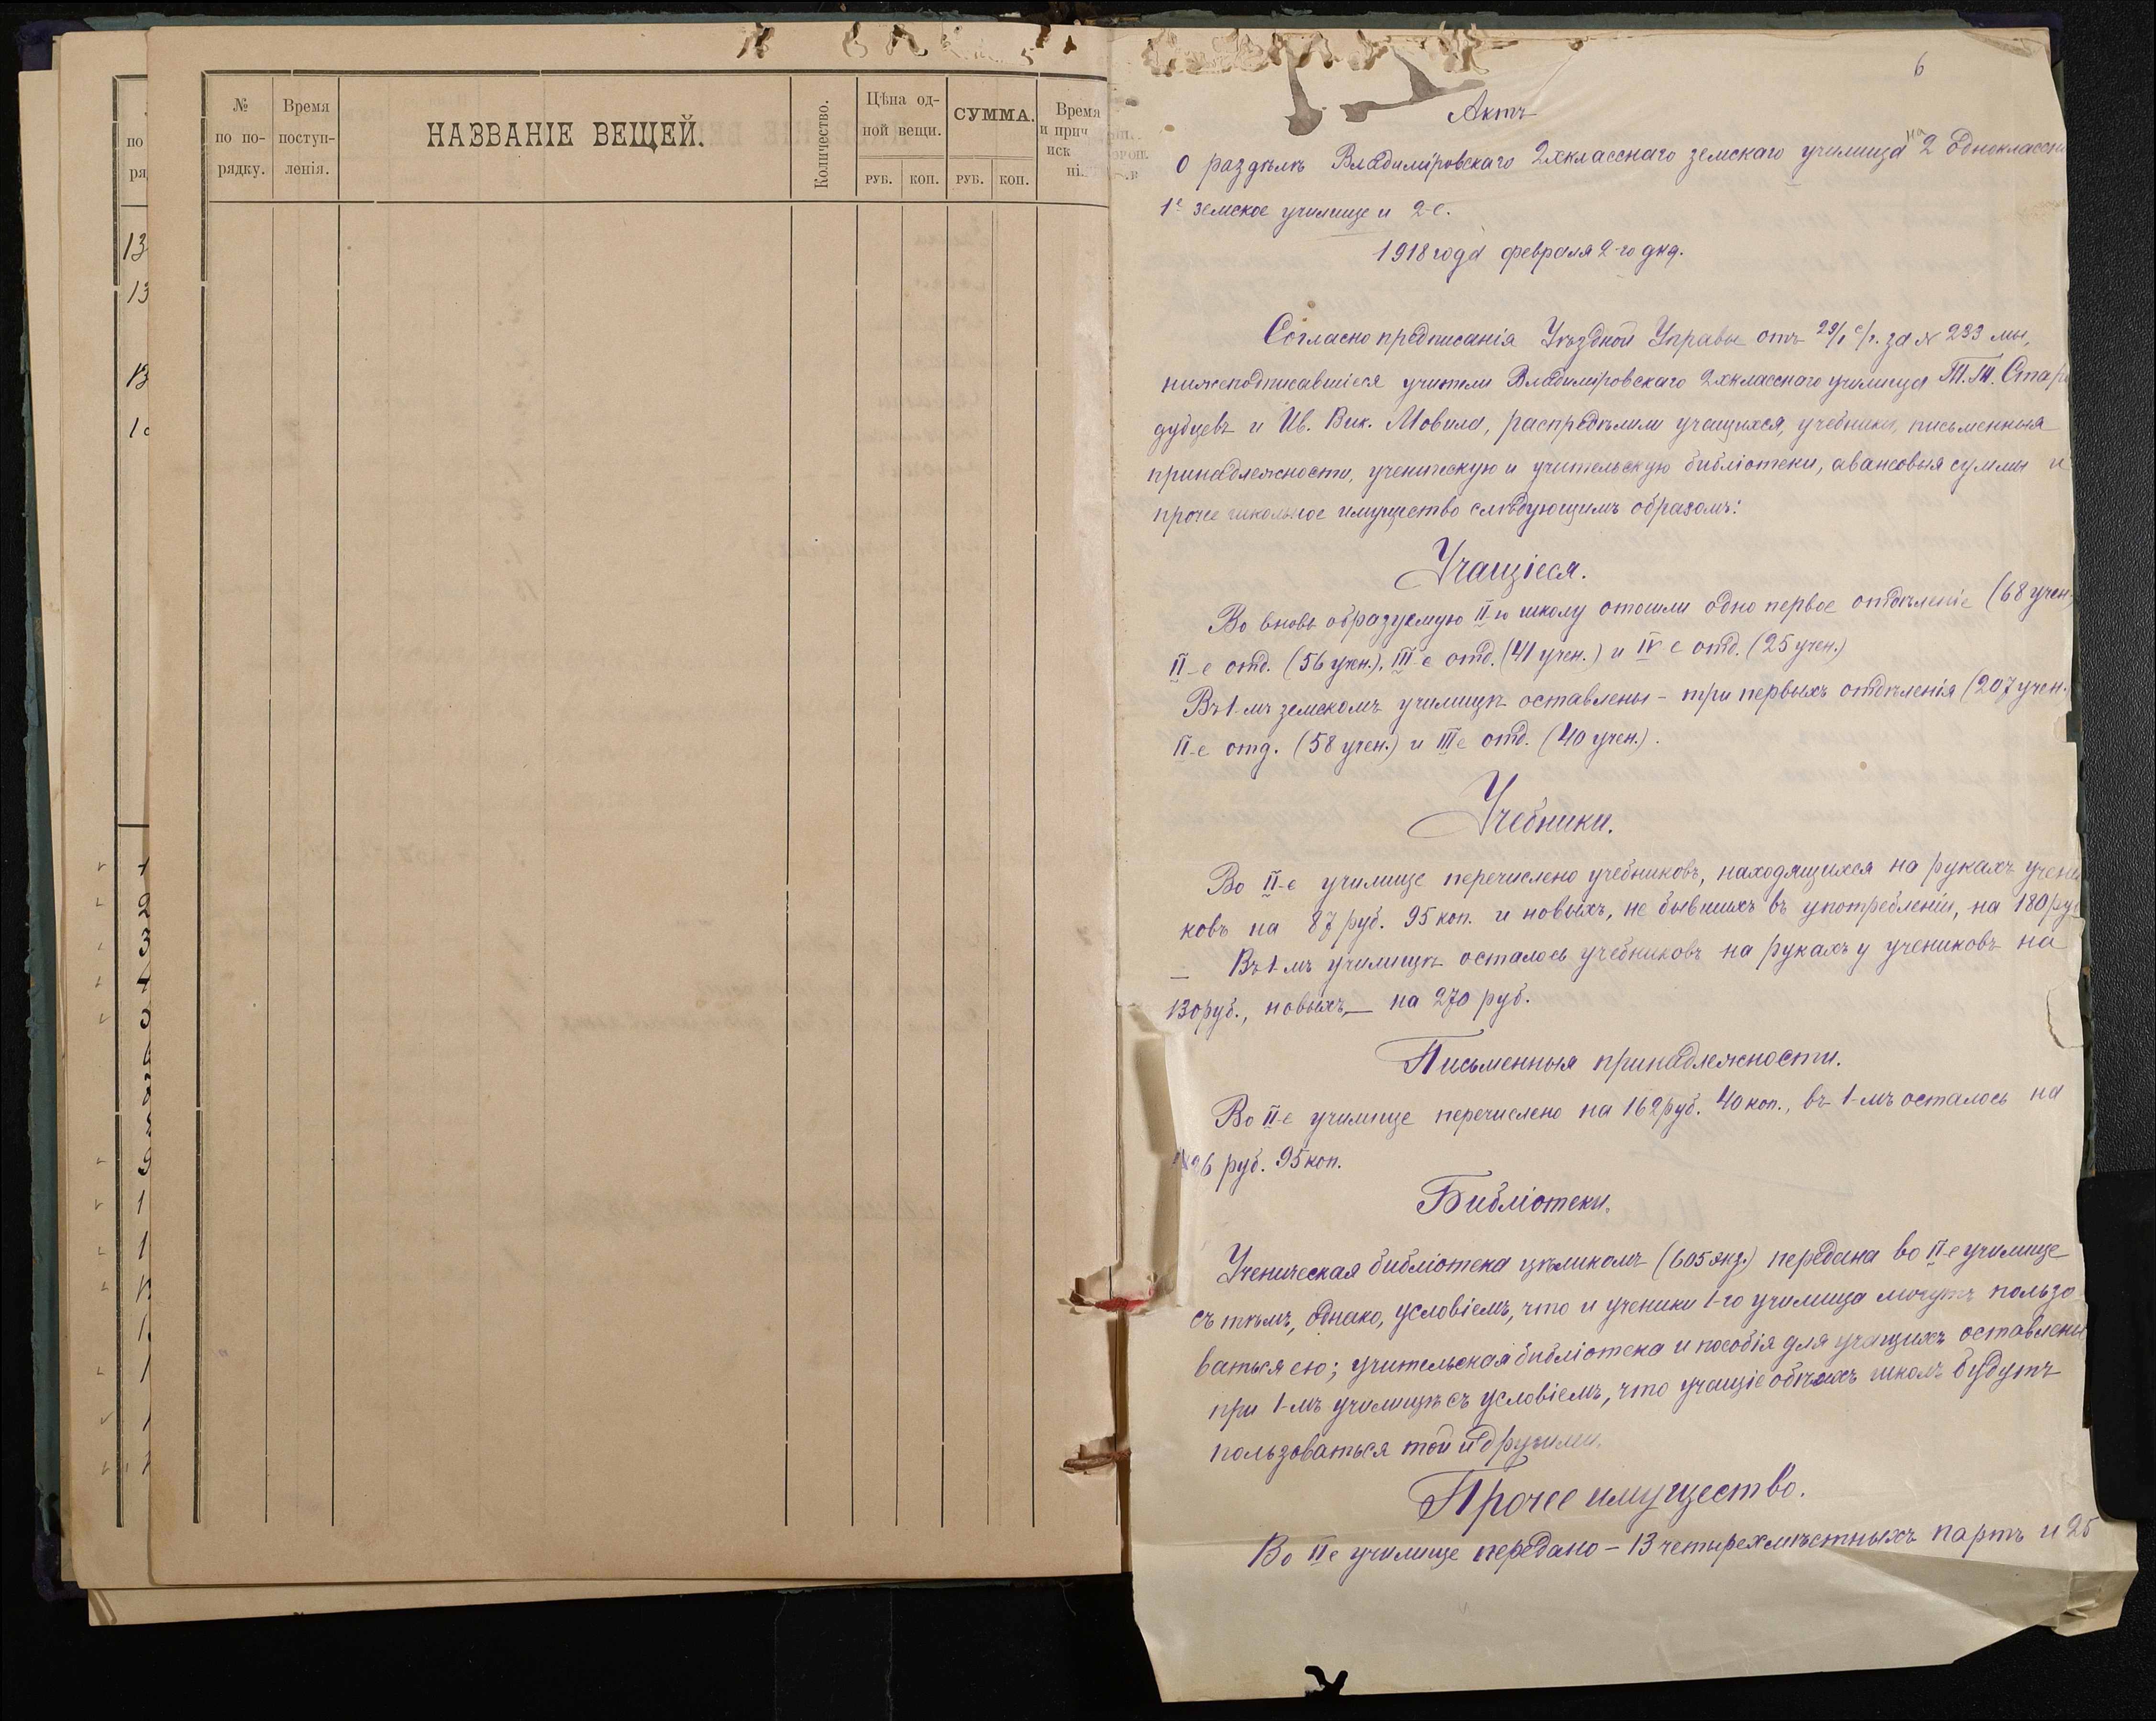 №
по по-
рядку.
Время
поступ-
ленія.
НАЗВАНІЕ ВЕЩЕЙ.
Количество.
Цѣна од-
ной вещи.
РУБ. КОП.
СУММА.
РУБ. КОП.
Время
и прич
иск
ні
по
ря
13
13
13
6
Актъ
О раздѣлѣ Владимiровскаго 2хкласснаго земскаго училища на 2 одноклассн
1е земское училище и 2-е.
1918 года февраля 2-го дня.
Согласно предписанія Уѣздной Управы отъ 29/I с/г. за № 233 мы,
нижеподписавшіеся учителя Владимiровскаго 2хкласснаго училища П. П. Старо
дубцевъ и Ив. Вик. Мовила, распредѣлили учащихся, учебники, письменныя
принадлежности, ученическую и учительскую библіотеки, авансовыя суммы и
прочее школьное имущество слѣдующимъ образомъ:
Учащіеся.
Во вновь образуемую II-ю школу отошли одно первое отдѣленіе (68 учен.)
II-е отд. (56 учен.), III-е отд. (41 учен.) и IV е отд. (25 учен.)
Въ 1-мъ земскомъ училищѣ оставлены - три первыхъ отдѣленія (207 учен.
II-е отд. (58 учен.) и III е отд. (40 учен.).
Учебники.
Во II-е училище перечислено учебниковъ, находящихся на рукахъ учени
ковъ на 87 руб. 95 коп. и новыхъ, не бывшихъ въ употребленіи, на 180 руб
— Въ 1-мъ училищѣ осталось учебниковъ на рукахъ у учениковъ на
130 руб., новыхъ, — на 270 руб.
Письменныя принадлежности.
Во II-е училище перечислено на 162 руб. 40 коп., въ 1-мъ осталось на
26 руб. 95 коп.
Библіотеки.
Ученическая библіотека цѣликомъ (605 экз.) передана во II-е училище
съ тѣмъ, однако, условіемъ, что и ученики 1-го училища могутъ пользо
ваться ею; учительская библіотека и пособія для учащихъ оставлены
при 1-мъ училищѣ съ условіемъ, что учащіе обѣихъ школъ будутъ
пользоваться той и другими.
Прочее имущество.
Во II е училище передано - 13 четырехмѣстныхъ партъ и 25